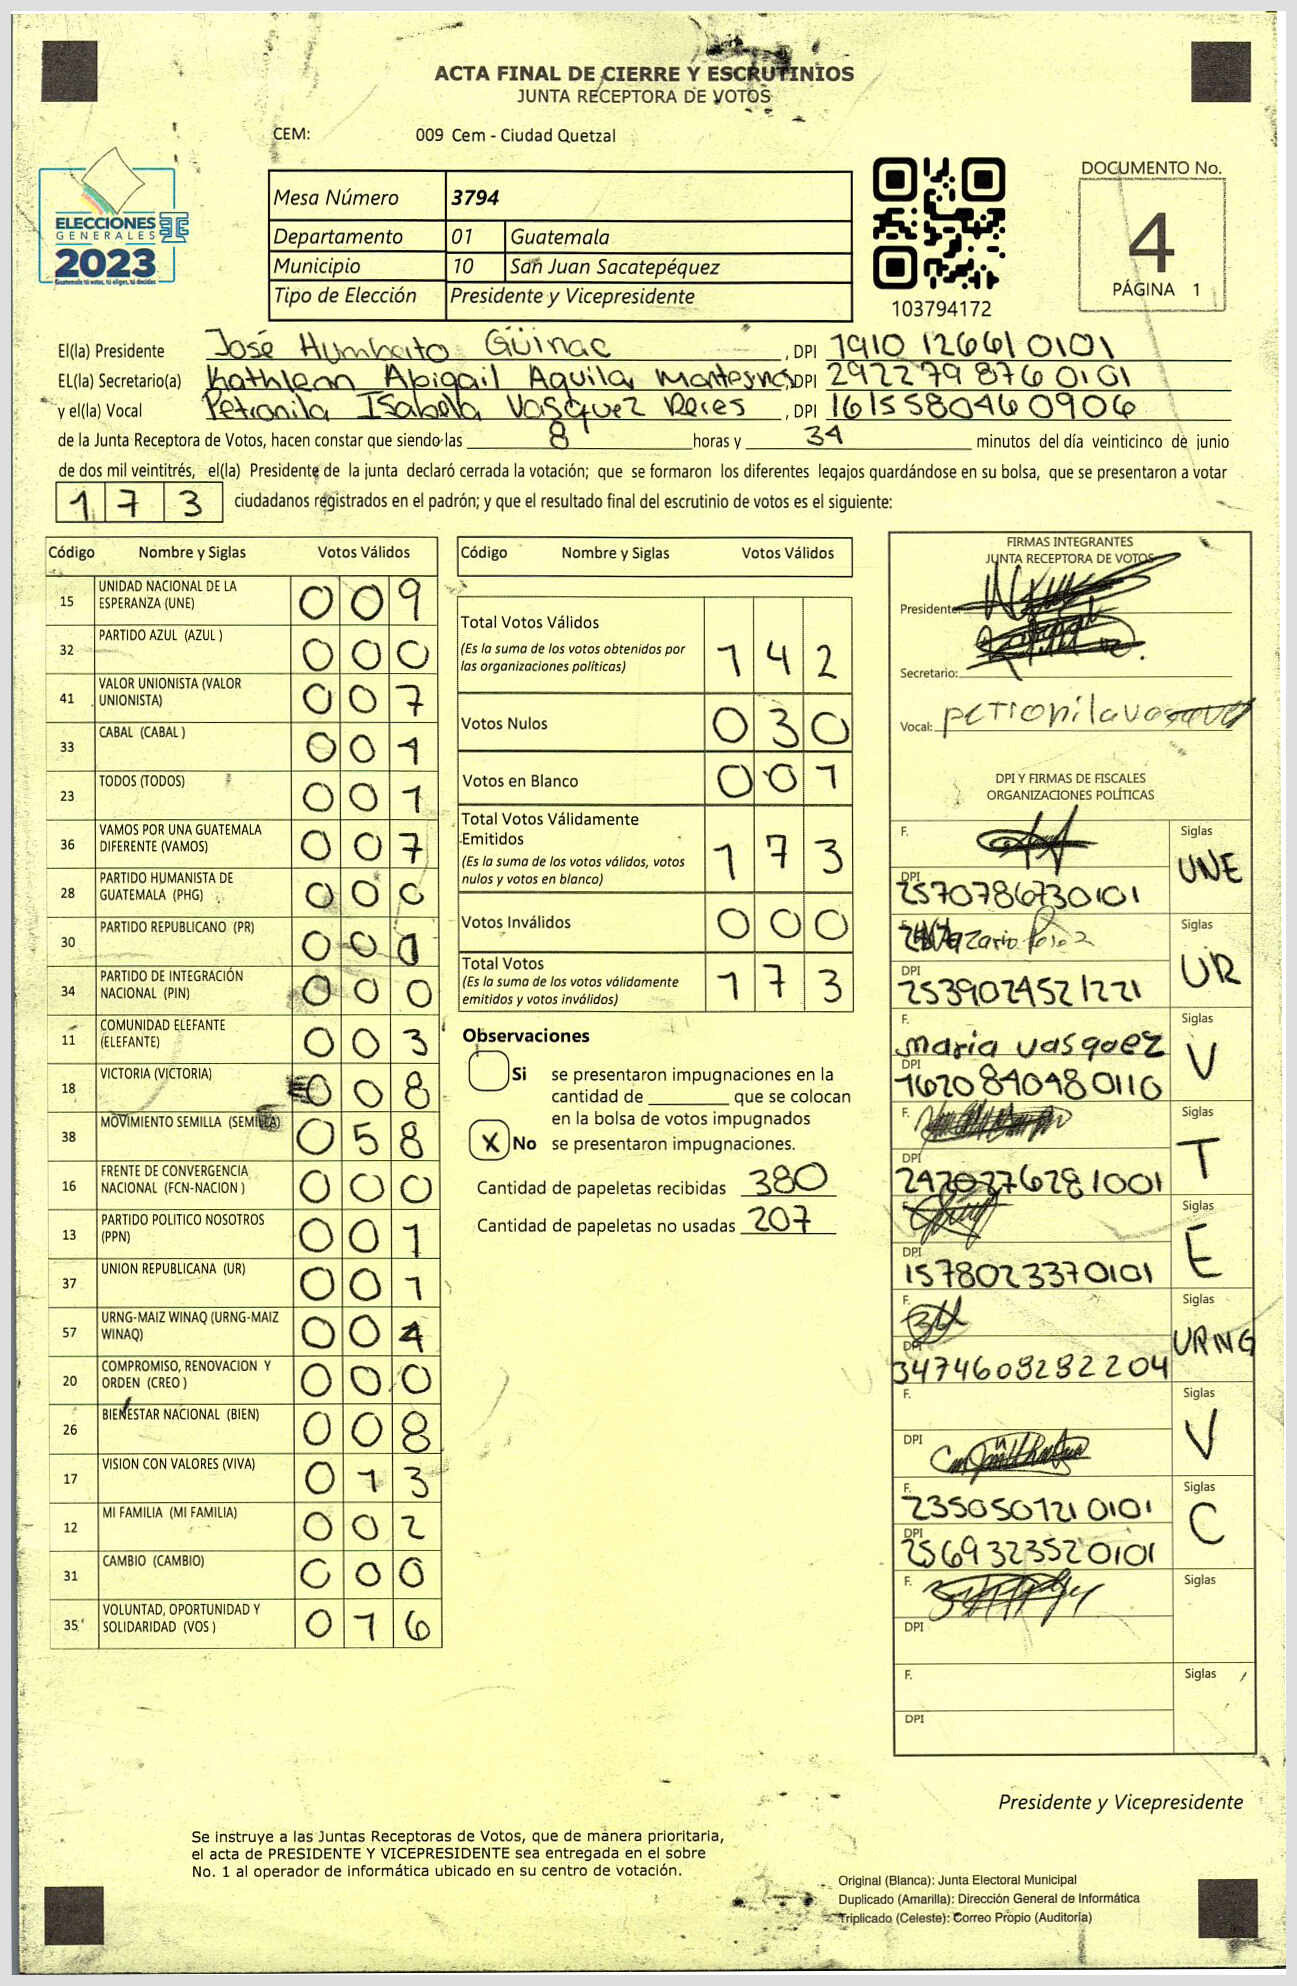 ACTA FINAL DE CIERRE Y ESCRUTINIOS
JUNTA RECEPTORA DE VOTOS
CEM: 009 Cem - Ciudad Quetzal
ELECCIONES
GENERALES
2023
Guatemala tú votas, tú eliges, tú decides
Mesa Número 3794
Departamento 01 Guatemala
Municipio 10 San Juan Sacatepéquez
Tipo de Elección Presidente y Vicepresidente
103794172
DOCUMENTO No.
4
PÁGINA 1
El(la) Presidente José Humberto Güinac, DPI 1910 12661 0101
EL(la) Secretario(a) Kathleen Abigail Aguilar DPI 2922798760101
y el(la) Vocal Petronila Isabela Vasquez Reres, DPI 1615580460906
de la Junta Receptora de Votos, hacen constar que siendo las 8 horas y 34 minutos del día veinticinco de junio
de dos mil veintitrés, el(la) Presidente de la junta declaró cerrada la votación; que se formaron los diferentes legajos guardándose en su bolsa, que se presentaron a votar
173 ciudadanos registrados en el padrón; y que el resultado final del escrutinio de votos es el siguiente:
Código Nombre y Siglas Votos Válidos
15 UNIDAD NACIONAL DE LA ESPERANZA (UNE) 009
32 PARTIDO AZUL (AZUL ) 000
41 VALOR UNIONISTA (VALOR UNIONISTA) 007
33 CABAL (CABAL ) 001
23 TODOS (TODOS) 001
36 VAMOS POR UNA GUATEMALA DIFERENTE (VAMOS) 007
28 PARTIDO HUMANISTA DE GUATEMALA (PHG) 000
30 PARTIDO REPUBLICANO (PR) 001
34 PARTIDO DE INTEGRACIÓN NACIONAL (PIN) 000
11 COMUNIDAD ELEFANTE (ELEFANTE) 003
18 VICTORIA (VICTORIA) 008
38 MOVIMIENTO SEMILLA (SEMILLA) 058
16 FRENTE DE CONVERGENCIA NACIONAL (FCN-NACION ) 000
13 PARTIDO POLITICO NOSOTROS (PPN) 001
37 UNION REPUBLICANA (UR) 001
57 URNG-MAIZ WINAQ (URNG-MAIZ WINAQ) 004
20 COMPROMISO, RENOVACION Y ORDEN (CREO ) 000
26 BIENESTAR NACIONAL (BIEN) 008
17 VISION CON VALORES (VIVA) 013
12 MI FAMILIA (MI FAMILIA) 002
31 CAMBIO (CAMBIO) 000
35 VOLUNTAD, OPORTUNIDAD Y SOLIDARIDAD (VOS ) 016
Código Nombre y Siglas Votos Válidos
Total Votos Válidos 142
(Es la suma de los votos obtenidos por las organizaciones políticas)
Votos Nulos 030
Votos en Blanco 001
Total Votos Válidamente Emitidos 173
(Es la suma de los votos válidos, votos nulos y votos en blanco)
Votos Inválidos 000
Total Votos 173
(Es la suma de los votos válidamente emitidos y votos inválidos)
Observaciones
Si se presentaron impugnaciones en la
cantidad de ________ que se colocan
en la bolsa de votos impugnados
X No se presentaron impugnaciones.
Cantidad de papeletas recibidas 380
Cantidad de papeletas no usadas 207
FIRMAS INTEGRANTES
JUNTA RECEPTORA DE VOTOS
Presidente:
Secretario:
Vocal: petronila
DPI Y FIRMAS DE FISCALES
ORGANIZACIONES POLÍTICAS
F. Siglas UNE
DPI 2570786730101
F. Siglas UR
DPI 2539024521221
F. maria vasquez Siglas V
DPI 1620840480110
F. Siglas T
DPI 2420276281001
F. Siglas E
DPI 1578023370101
F. Siglas URNG
DPI 3474608282204
F. Siglas V
DPI
F. 2350507210101 Siglas C
DPI 2569323520101
F. Siglas
DPI
F. Siglas
DPI
Presidente y Vicepresidente
Se instruye a las Juntas Receptoras de Votos, que de manera prioritaria,
el acta de PRESIDENTE Y VICEPRESIDENTE sea entregada en el sobre
No. 1 al operador de informática ubicado en su centro de votación.
Original (Blanca): Junta Electoral Municipal
Duplicado (Amarilla): Dirección General de Informática
Triplicado (Celeste): Correo Propio (Auditoría)